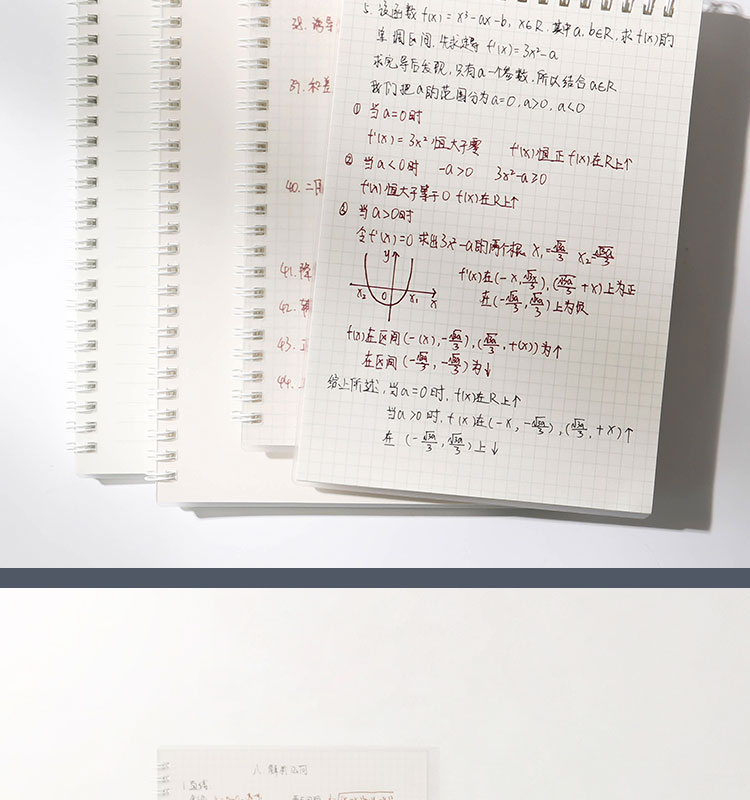 38. 诱导
39. 和差
40. 二
41.
42. 辅
43. 正
44.
5. 设函数 f(x) = x³-ax-b, x∈R, 其中a, b∈R, 求f(x)的
单调区间. 先求导 f'(x)=3x²-a
求完导后发现, 只有a一个参数, 所以结合a∈R
我们把a的范围分为a=0, a>0, a<0
① 当a=0时
f'(x) = 3x² 恒大于零 f'(x)恒正 f(x)在R上↑
② 当a<0时 -a>0 3x²-a≥0
f'(x)恒大于等于0 f(x)在R上↑
③ 当a>0时
令f'(x)=0 求出3x²-a的两个根 x₁=√3a/3 x₂=√3a/3
y
x₂ 0 x₁ x
f'(x)在(-x,√3a/3),(√3a/3+x)上为正
在(-√3a/3,√3a/3)上为负
f(x)在区间(-(x),-√3a/3),(√3a/3,+(x))为↑
在区间(-√3a/3,-√3a/3)为↓
综上所述, 当a=0时, f(x)在R上↑
当a>0时, f(x)在(-x,-√3a/3),(√3a/3,+x)↑
在 (-√3a/3,√3a/3)上↓
八. 解析几何
1. 直线